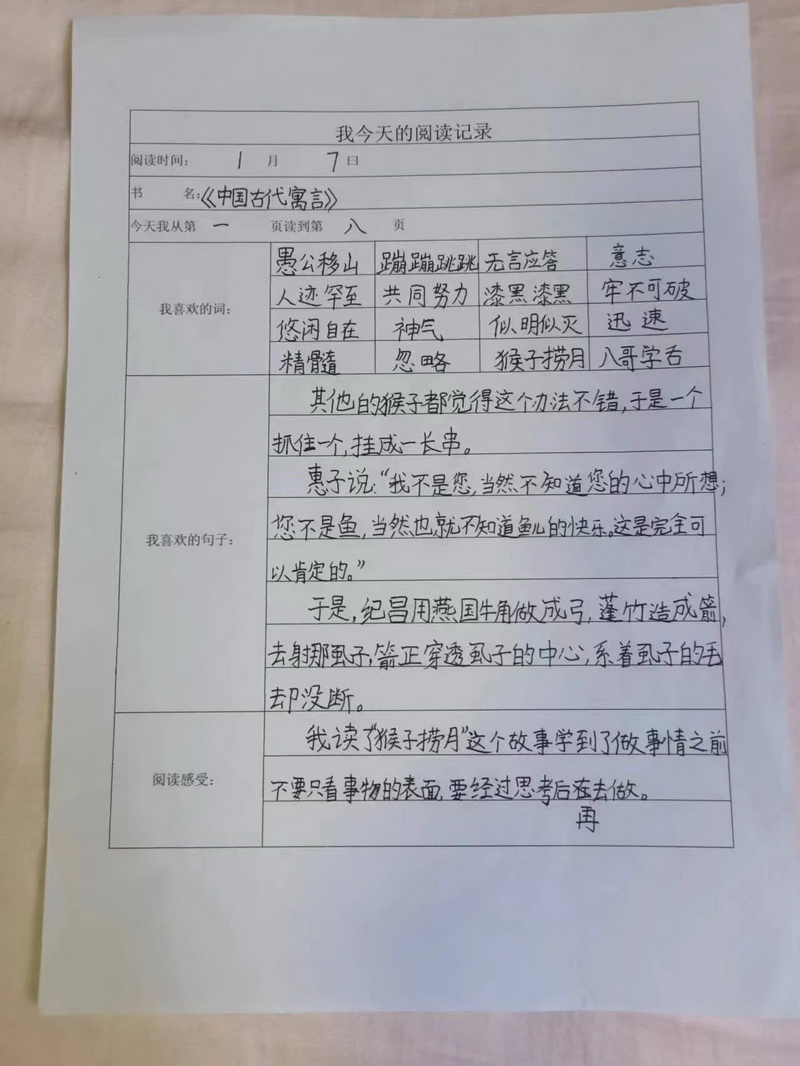 我今天的阅读记录
阅读时间： 1 月 7 日
书 名：《中国古代寓言》
今天我从第 一 页读到第 八 页
我喜欢的词：
愚公移山 蹦蹦跳跳 无言应答 意志
人迹罕至 共同努力 漆黑漆黑 牢不可破
悠闲自在 神气 似明似灭 迅速
精髓 忽略 猴子捞月 八哥学舌
我喜欢的句子：
其他的猴子都觉得这个办法不错，于是一个
抓住一个，挂成一长串。
惠子说：“我不是您，当然不知道您的心中所想；
您不是鱼，当然也就不知道鱼儿的快乐。这是完全可
以肯定的。”
于是，纪昌用燕国牛角做成弓，蓬竹造成箭，
去射那虱子，箭正穿透虱子的中心，系着虱子的毛
却没断。
阅读感受：
我读了“猴子捞月”这个故事学到了做事情之前
不要只看事物的表面，要经过思考后在去做。
再